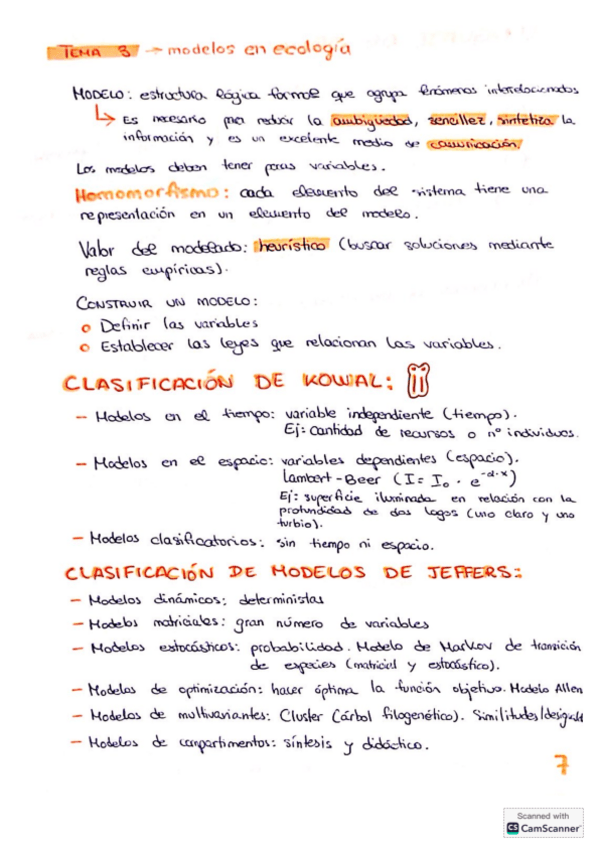 TEMA 3 → modelos en ecología
MODELO: estructura lógica formal que agrupa fenómenos interrelacionados
↳ Es necesario para reducir la ambigüedad, sencillez, sintetiza la
información y es un excelente medio de comunicación.
Los modelos deben tener pocas variables.
Homomorfismo: cada elemento del sistema tiene una
representación en un elemento del modelo.
Valor del modelado: heurístico (buscar soluciones mediante
reglas empíricas).
CONSTRUIR UN MODELO:
o Definir las variables
o Establecer las leyes que relacionan las variables.
CLASIFICACIÓN DE KOWAL: !!
- Modelos en el tiempo: variable independiente (tiempo).
Ej: cantidad de recursos o nº individuos.
- Modelos en el espacio: variables dependientes (espacio).
Lambert-Beer (I = I₀ · e^-α·x)
Ej: superficie iluminada en relación con la
profundidad de dos lagos (uno claro y uno
turbio).
- Modelos clasificatorios: sin tiempo ni espacio.
CLASIFICACIÓN DE MODELOS DE JEFFERS:
- Modelos dinámicos: deterministas
- Modelos matriciales: gran número de variables
- Modelos estocásticos: probabilidad. Modelo de Markov de transición
de especies (matricial y estocástico).
- Modelos de optimización: hacer óptima la función objetivo. Modelo Allen
- Modelos de multivariantes: Cluster (árbol filogenético). Similitudes/desiguald
- Modelos de compartimentos: síntesis y didáctico.
7
Scanned with
CS CamScanner